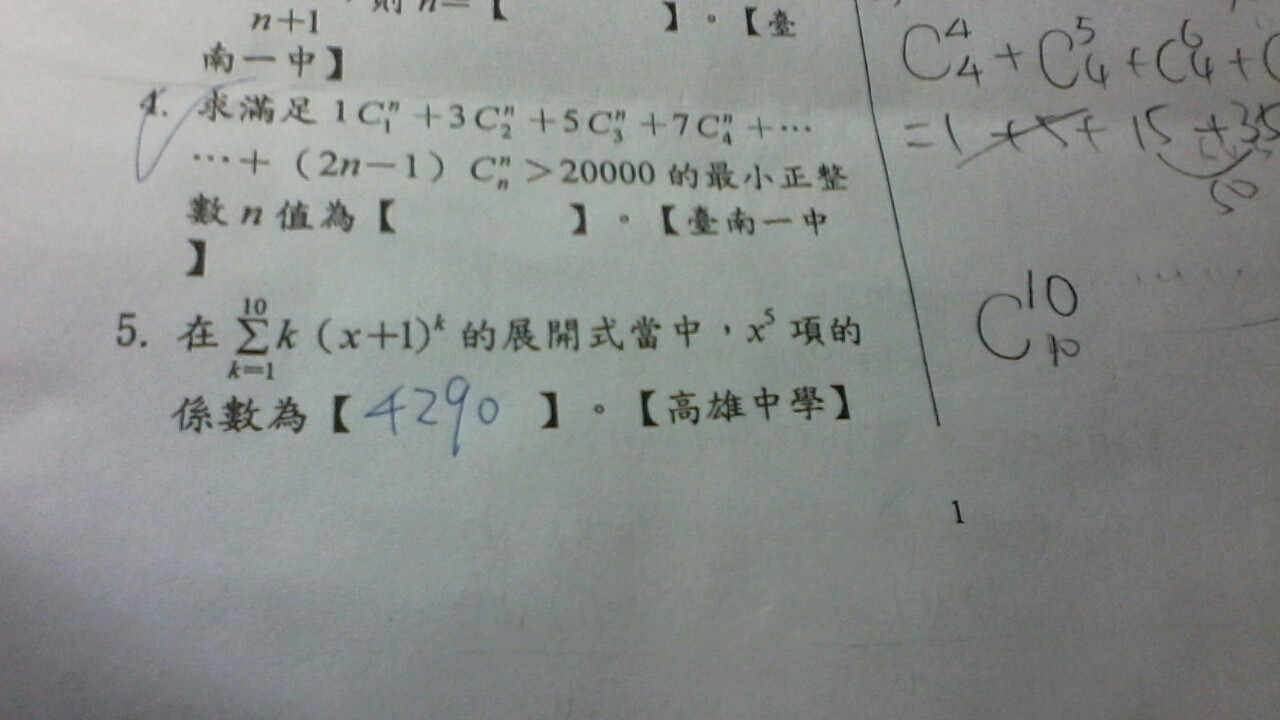 n+1 ,則 n=【 】。【臺
南一中】
4. 求滿足 1C₁ⁿ+3C₂ⁿ+5C₃ⁿ+7C₄ⁿ+⋯
⋯+(2n−1)Cₙⁿ>20000 的最小正整
數 n 值為【 】。【臺南一中
】
5. 在 ∑_{k=1}^{10} k(x+1)ᵏ 的展開式當中,x⁵ 項的
係數為【 4290 】。【高雄中學】
C₄⁴+C₄⁵+C₄⁶+C
=1+5+15+35
50
C₁₀¹⁰
1